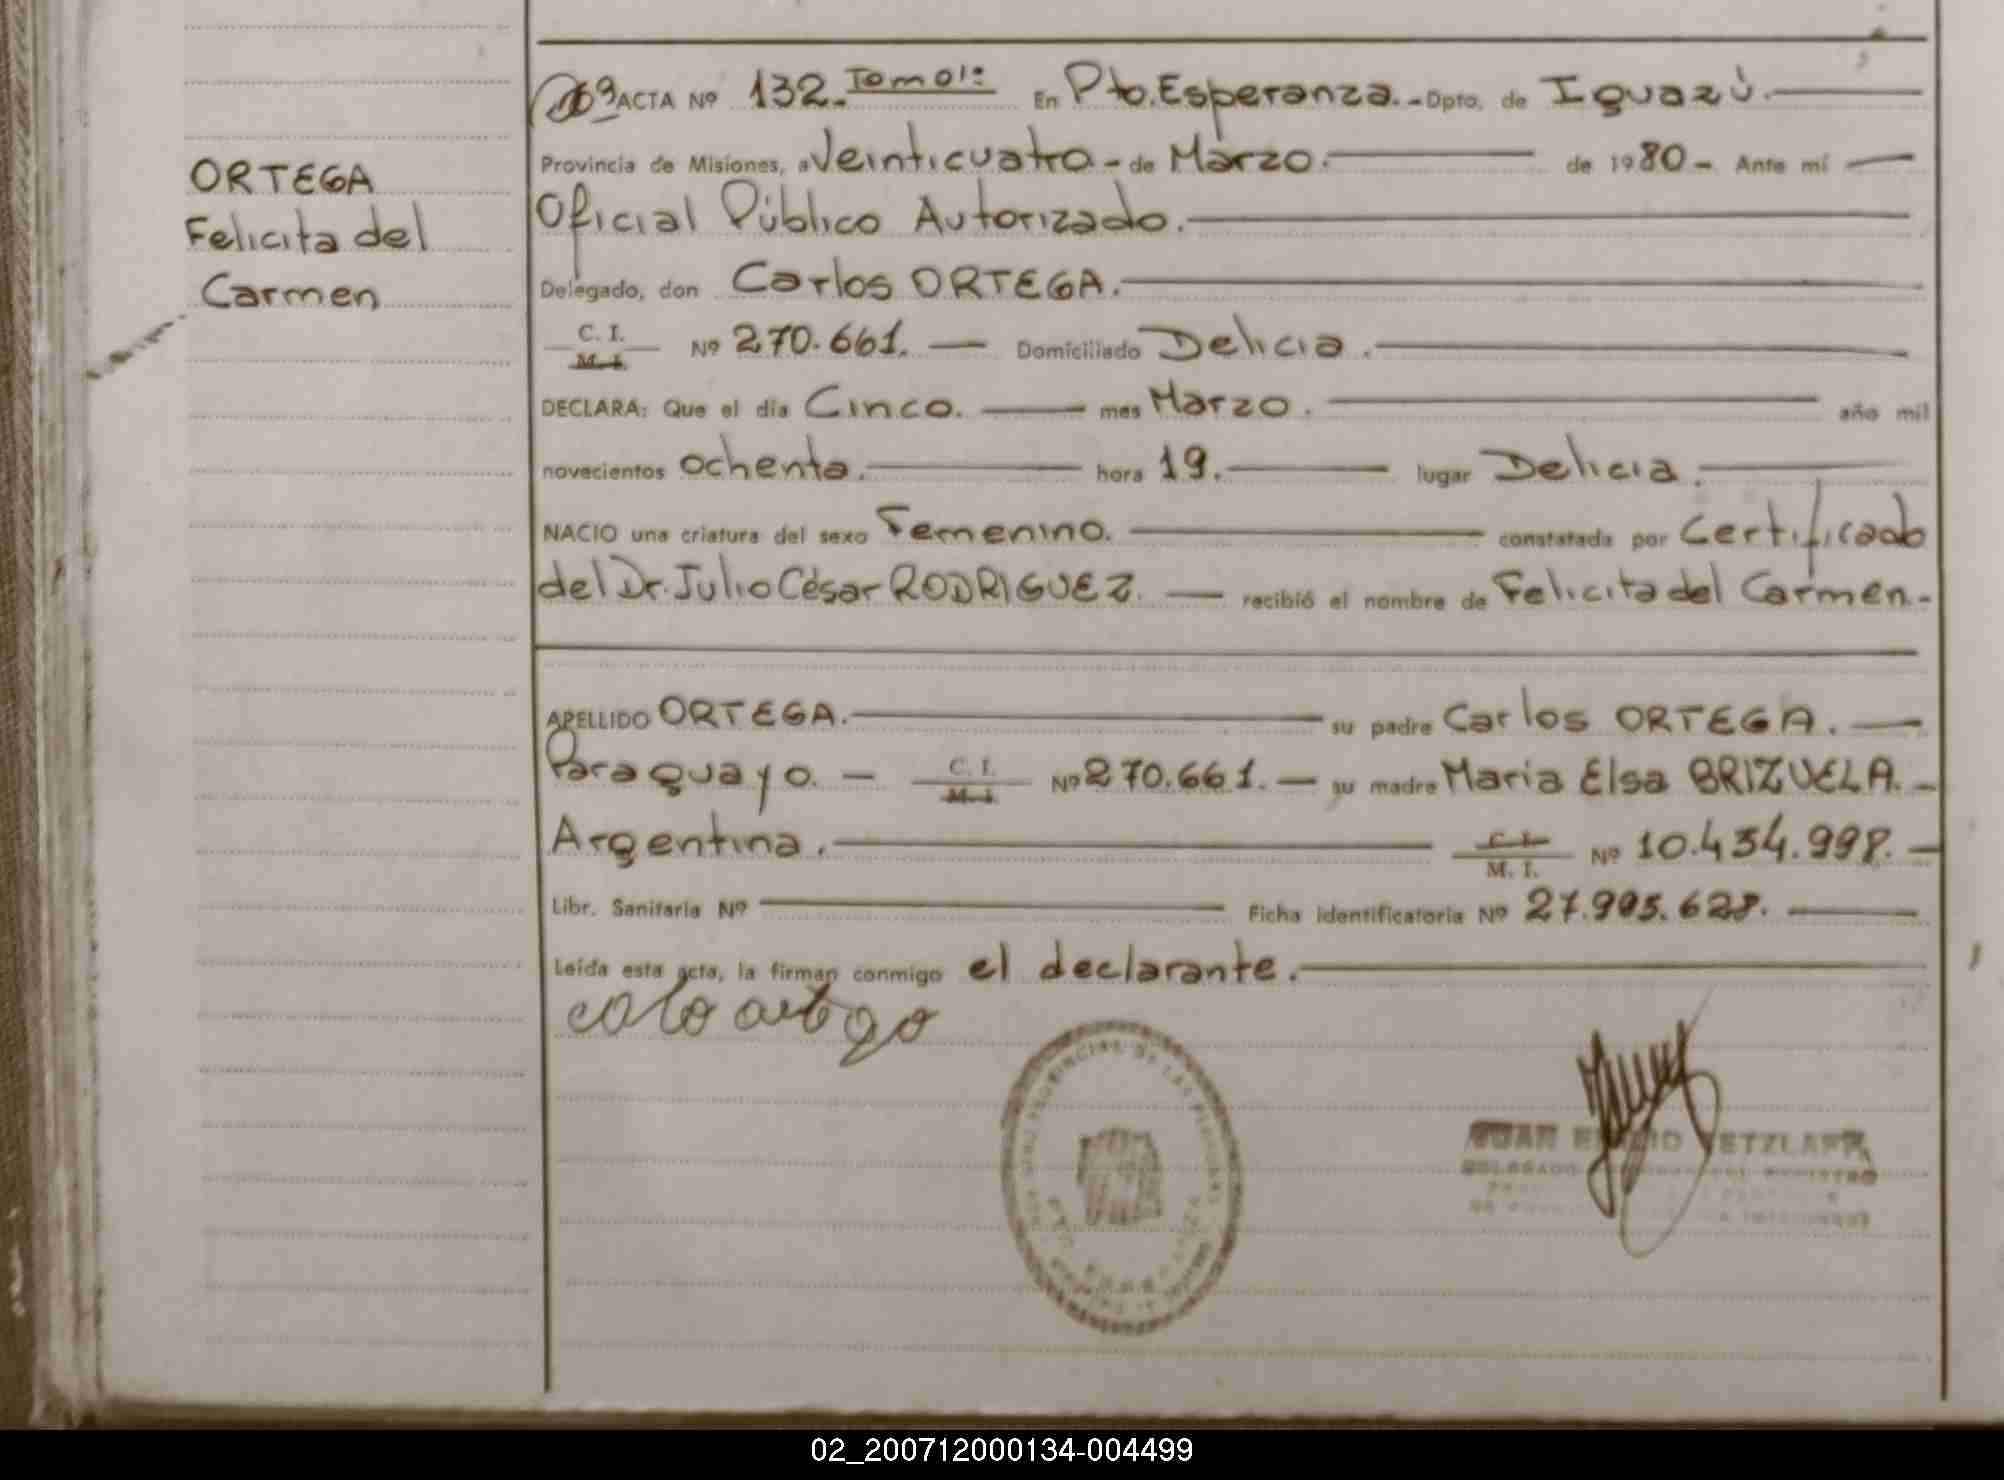 ORTEGA
Felicita del
Carmen
ACTA Nº 132. Tomo 1º En Pto. Esperanza. - Dpto. de Iguazú.
Provincia de Misiones, a Veinticuatro - de Marzo. de 1980 - Ante mí
Oficial Público Autorizado.
Delegado, don Carlos ORTEGA.
C. I.
M. I.
Nº 270.661. Domiciliado Delicia.
DECLARA: Que el día Cinco. mes Marzo. año mil
novecientos ochenta. hora 19. lugar Delicia.
NACIO una criatura del sexo Femenino. constatada por Certificado
del Dr. Julio César RODRIGUEZ. recibió el nombre de Felicita del Carmen.-
APELLIDO ORTEGA. su padre Carlos ORTEGA.
Paraguayo. C. I.
M. I.
Nº 270.661. su madre Maria Elsa BRIZUELA.-
Argentina. C. I.
M. I.
Nº 10.434.998.
Libr. Sanitaria Nº Ficha identificatoria Nº 27.995.628.
Leída esta acta, la firman conmigo el declarante.
PROVINCIAL DE LAS PERSONAS
JUAN
02_200712000134-004499